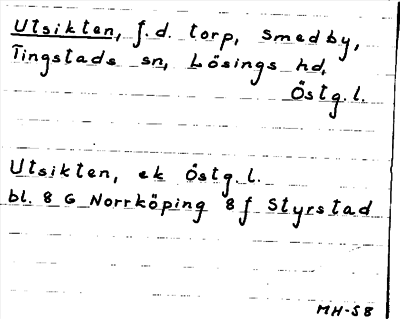 Utsikten, f.d. torp, Smedby,
Tingstads sn, Lösings hd,
Östg.l.
Utsikten, ek Östg.l.
bl. 8 G Norrköping 8 f Styrstad
MH-58